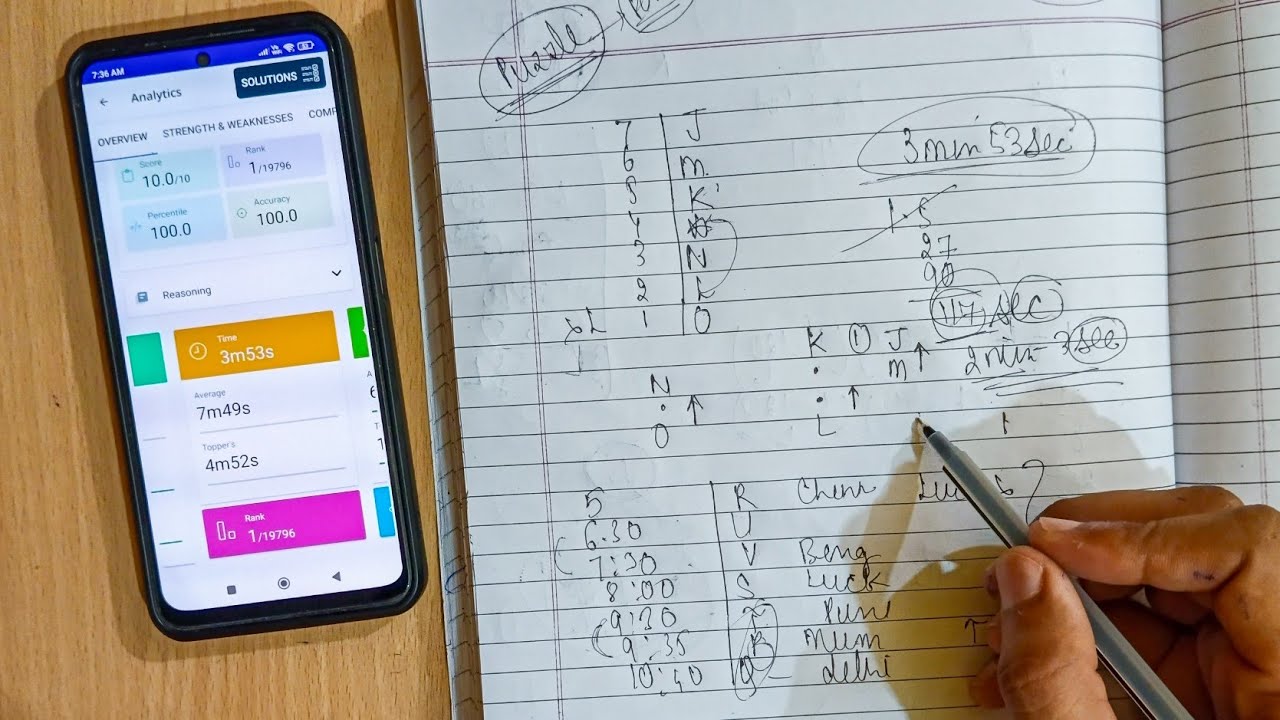 7:36 AM
Analytics
SOLUTIONS
OVERVIEW STRENGTH & WEAKNESSES COMP
Score
10.0/10
Rank
1/19796
Percentile
100.0
Accuracy
100.0
Reasoning
Time
3m53s
Average
7m49s
Topper's
4m52s
Rank
1/19796
Puzzle
3min 53sec
7 J
6 M
5 K
4
3 N
2 L
1 O
1.5
27
90
117 sec
2min - 3sec
K J
M
N
O
L
5 R Chenn
6:30 U
7:30 V Beng
8:00 S Luck
9:30 Pune
9:35 B Mum
10:40 Q Delhi